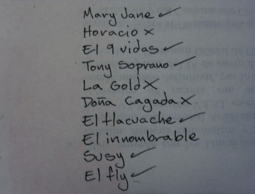 Mary Jane ✓
Horacio x
El 9 vidas ✓
Tony Soprano ✓
La Gold X
Doña Cagada X
El tlacuache ✓
El innombrable
Susy ✓
El fly ✓